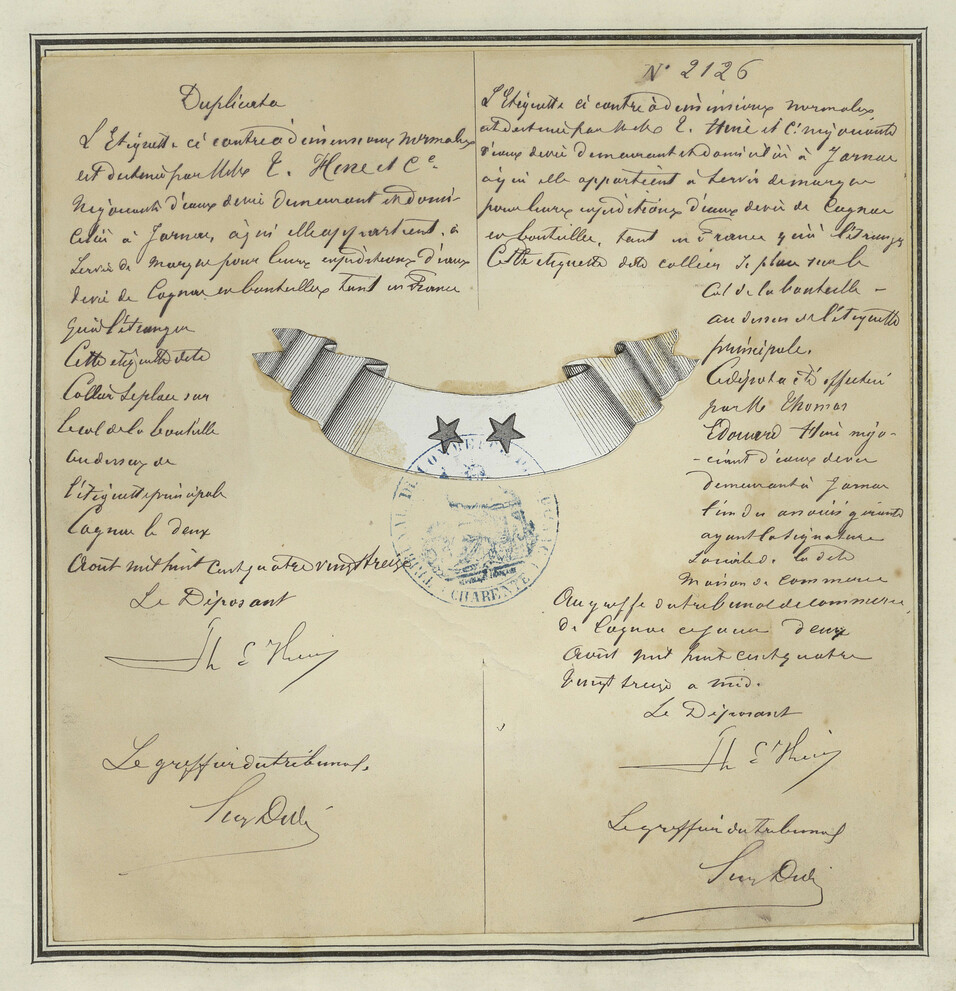 Duplicata
L'Etiquette ci contre a dimensions normales
est destinée par M.M. T. Hine et Ce
Négociants d'eaux devie demeurant et domi-
ciliés à Jarnac, à qui elle appartient, à
servir de marque pour leurs expéditions d'eaux
devie de Cognac en bouteilles tant en France
qu'à l'étranger
Cette etiquette dite
Collier se place sur
le col de la bouteille
au dessus de
l'étiquette principale
Cognac le deux
Aout mil huit cent quatre vingt treize
Le Déposant
Th E Hine
Le greffier du tribunal
N° 2126
L'Etiquette ci contre à dimensions normales
est destinée par M.M. T. Hine et Ce négociants
d'eaux devie demeurant et domiciliés à Jarnac
à qui elle appartient à servir de marque
pour leurs expéditions d'eaux devie de Cognac
en bouteilles, tant en France qu'à l'étranger
Cette etiquette dite collier se place sur le
Col de la bouteille -
au dessus de l'étiquette
principale.
Ce dépot a été effectué
par M. Thomas
Edouard Hine négo-
-ciant d'eaux devie
demeurant à Jarnac
l'un des associés gérants
ayant la signature
sociale de la dite
Maison de commerce
Au greffe du tribunal de commerce
de Cognac ce jour deux
Aout mil huit cent quatre
Vingt treize a midi.
Le Déposant
Th E Hine
Le greffier du tribunal
TRIBUNAL DE COMMERCE DE COGNAC
CHARENTE